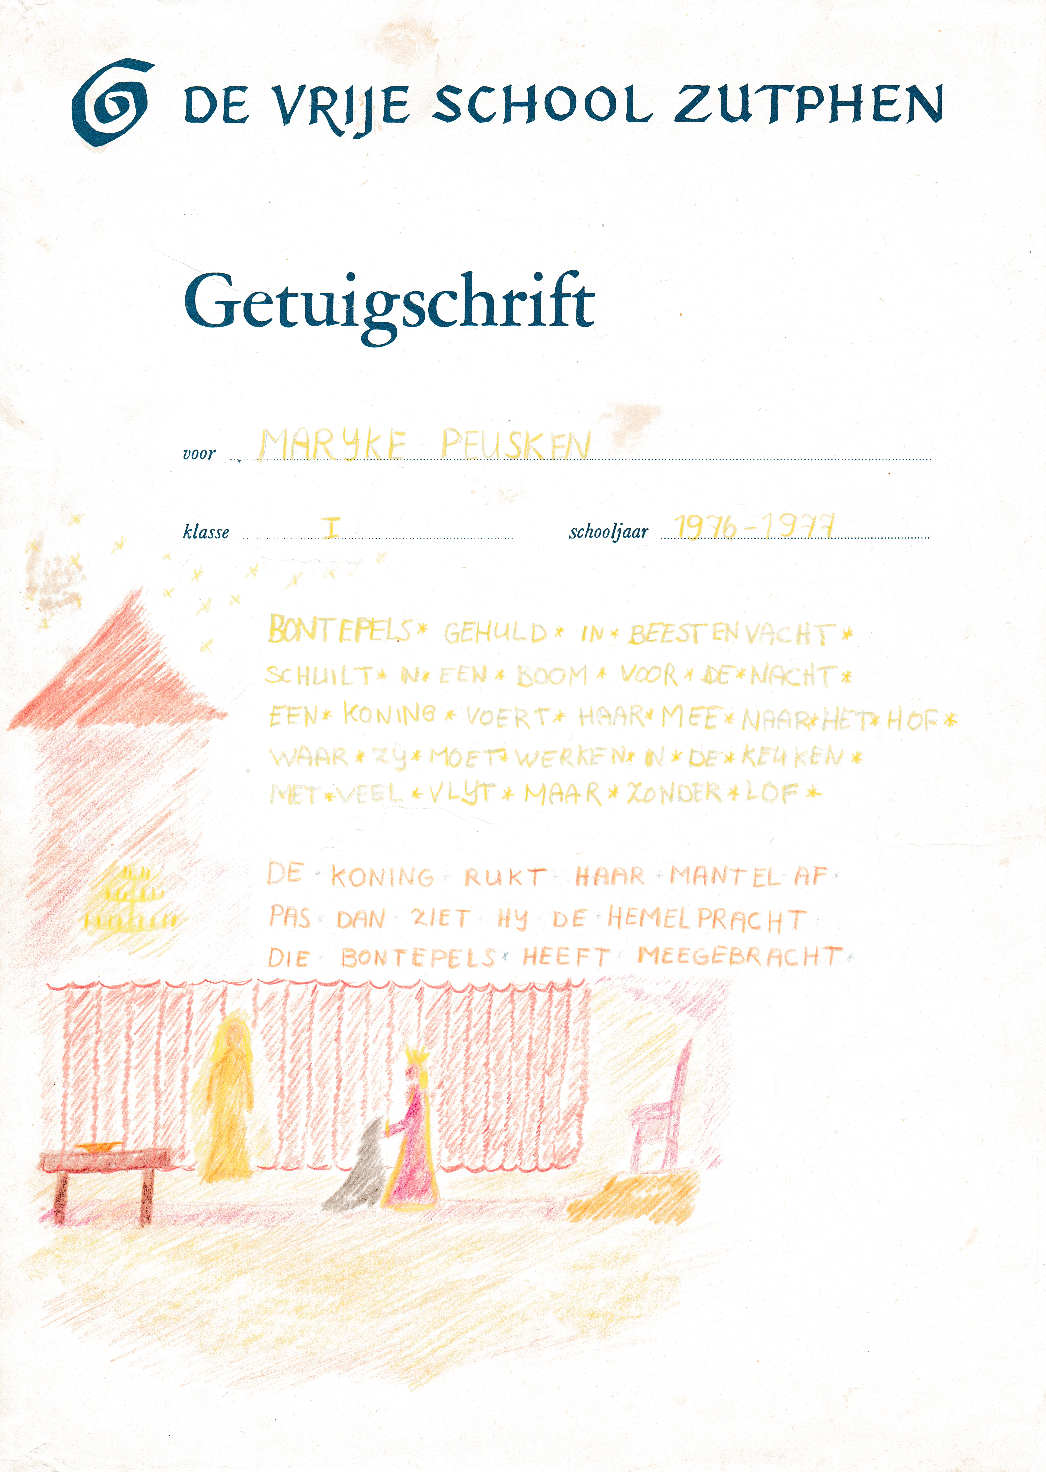 DE VRIJE SCHOOL ZUTPHEN
Getuigschrift
voor MARYKE PEUSKEN
klasse I schooljaar 1976-1977
BONTEPELS * GEHULD * IN * BEESTENVACHT *
SCHUILT * IN * EEN * BOOM * VOOR * DE * NACHT *
EEN * KONING * VOERT * HAAR * MEE * NAAR * HET * HOF *
WAAR * ZY * MOET * WERKEN * IN * DE * KEUKEN *
MET * VEEL * VLYT * MAAR * ZONDER * LOF *
DE · KONING · RUKT · HAAR · MANTEL · AF ·
PAS · DAN · ZIET · HY · DE · HEMELPRACHT ·
DIE · BONTEPELS · HEEFT · MEEGEBRACHT ·